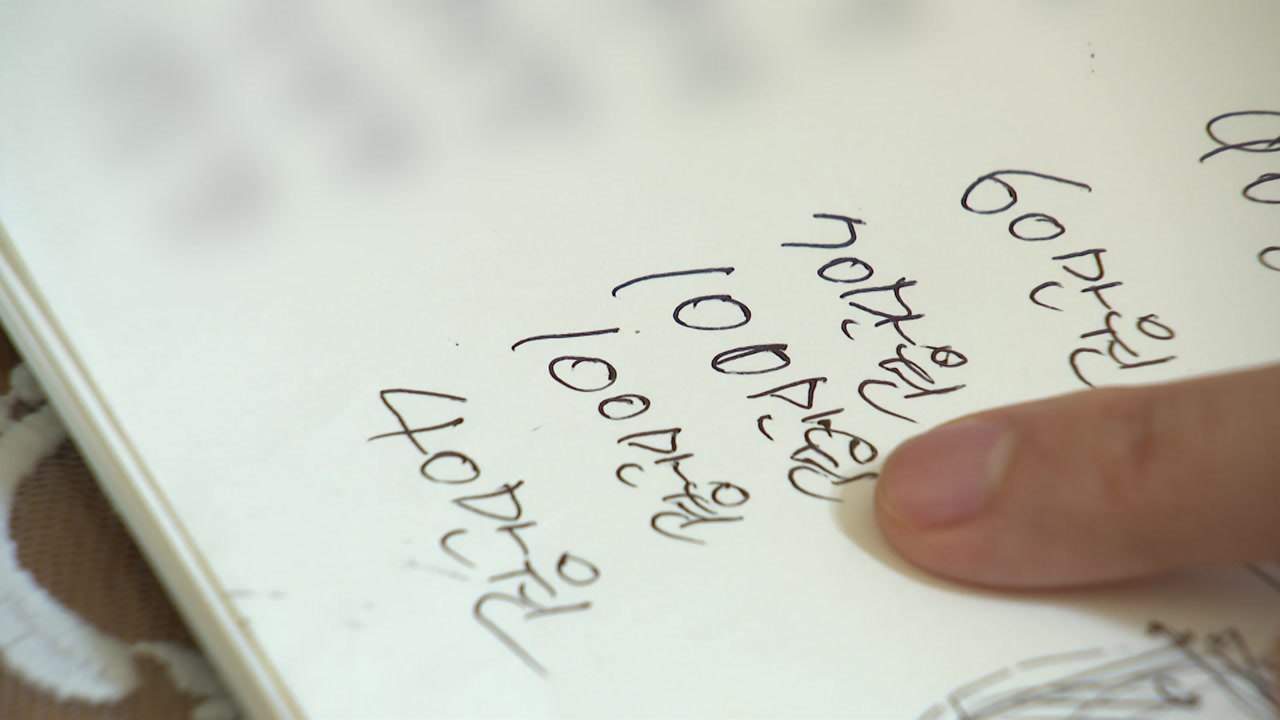 60만원
70만원
100만원
100만원
40만원